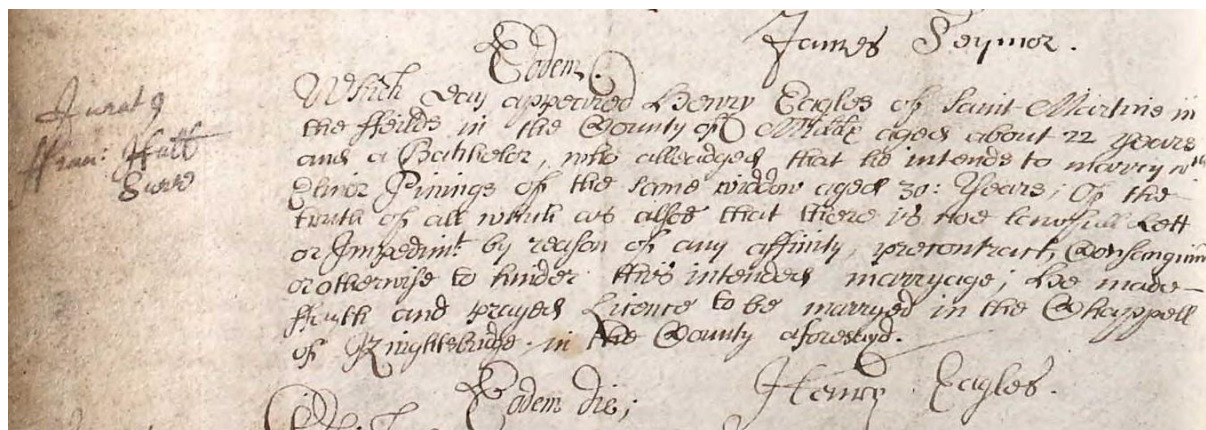 James Seymor.
Eodem.
Jurat 9
ffran: Hall
Surro
Which day appeared Henry Eagles of Saint Martins in
the ffeilds in the County of Midds aged about 22 years
and a Bachelor, who alleadged that he intends to marry wth
Elinor Pinings of the same widdow aged 30: Years; Of the
truth of all which as alsoe that there is noe lawfull Lett
or Impedimt. by reason of any affinity, precontract, Consanguin
or otherwise to hinder this intended marryage; He made
ffayth and prayed Licence to be marryed in the Chappell
of Knightsbridge in the County aforesayd.
Henry Eagles.
Eodem die;